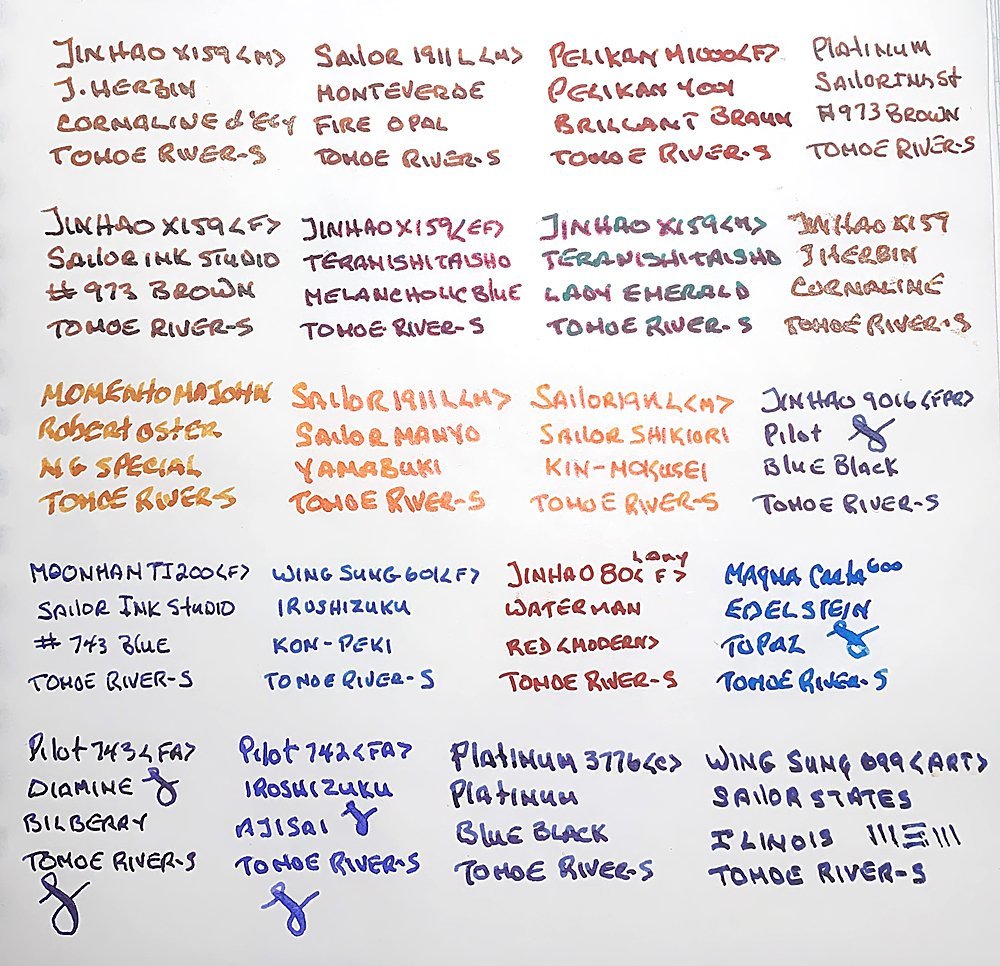 JINHAO X159 <M>
J. HERBIN
CORNALINE d'EGY
TOMOE RIVER-S
SAILOR 1911 L <M>
MONTEVERDE
FIRE OPAL
TOMOE RIVER-S
PELIKAN M1000 <F>
PELIKAN 4001
BRILLANT BRAUN
TOMOE RIVER-S
PLATINUM
SAILOR INK St
#973 BROWN
TOMOE RIVER-S
JINHAO X159 <F>
SAILOR INK STUDIO
# 973 BROWN
TOMOE RIVER-S
JINHAO X159 <EF>
TERANISHI TAISHO
MELANCHOLIC BLUE
TOMOE RIVER-S
JINHAO X159 <M>
TERANISHI TAISHO
LADY EMERALD
TOMOE RIVER-S
JINHAO X159
J HERBIN
CORNALINE
TOMOE RIVER-S
MOMENHO MAJOHN
Robert OSTER
NG SPECIAL
TOMOE RIVER-S
SAILOR 1911 L <M>
SAILOR MANYO
YAMABUKI
TOMOE RIVER-S
SAILOR 1911 L <M>
SAILOR SHIKIORI
KIN-MOKUSEI
TOMOE RIVER-S
JINHAO 9016 <FPR>
Pilot
BLUE BLACK
TOMOE RIVER-S
MOONMAN TI200 <F>
SAILOR INK STUDIO
# 743 BLUE
TOMOE RIVER-S
WING SUNG 601 <F>
IROSHIZUKU
KON-PEKI
TOMOE RIVER-S
JINHAO 80 <F>
WATERMAN
RED <MODERN>
TOMOE RIVER-S
MAGNA Carta 600
EDELSTEIN
TOPAZ
TOMOE RIVER-S
Pilot 743 <FA>
DIAMINE
BILBERRY
TOMOE RIVER-S
Pilot 742 <FA>
IROSHIZUKU
AJISAI
TOMOE RIVER-S
PLATINUM 3776 <C>
PLATINUM
BLUE BLACK
TOMOE RIVER-S
WING SUNG 699 <ART>
SAILOR STATES
ILINOIS
TOMOE RIVER-S